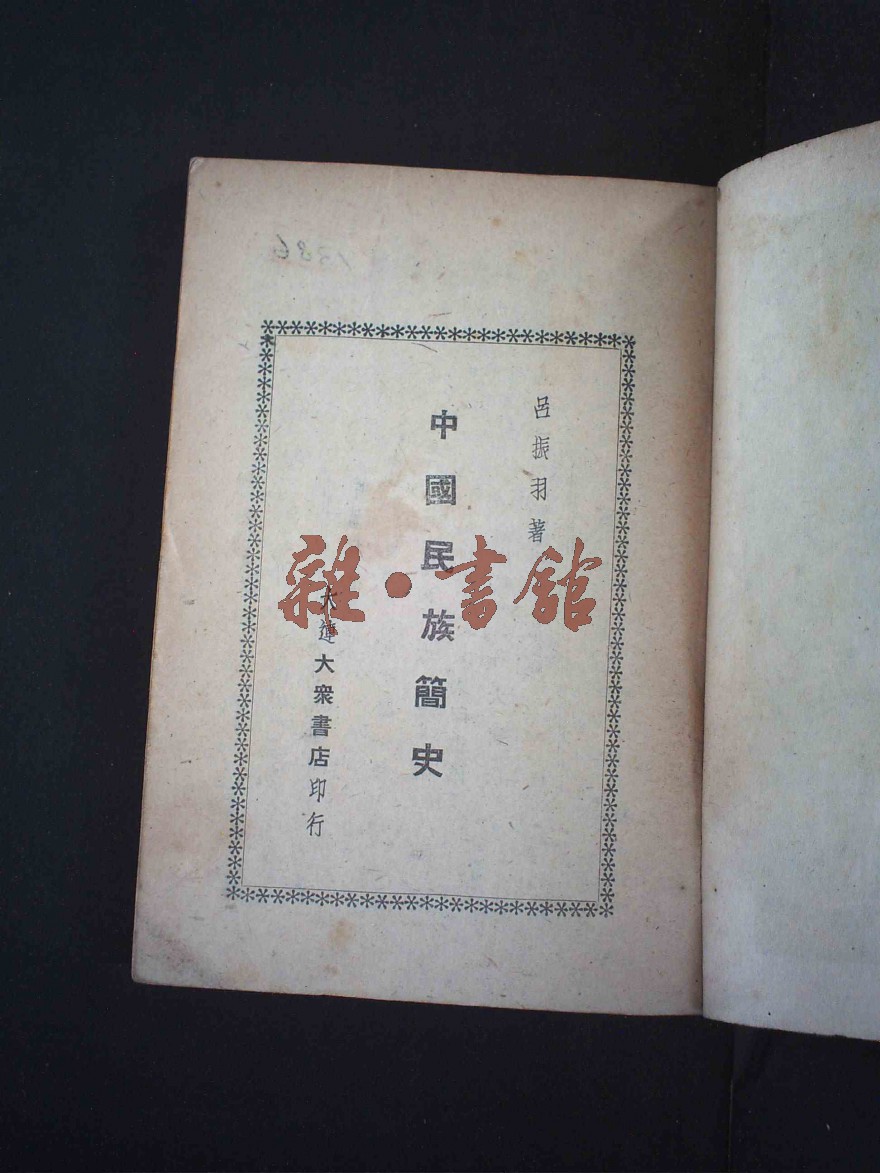 呂振羽著
中國民族簡史
大連大衆書店印行
雜·書館
1386